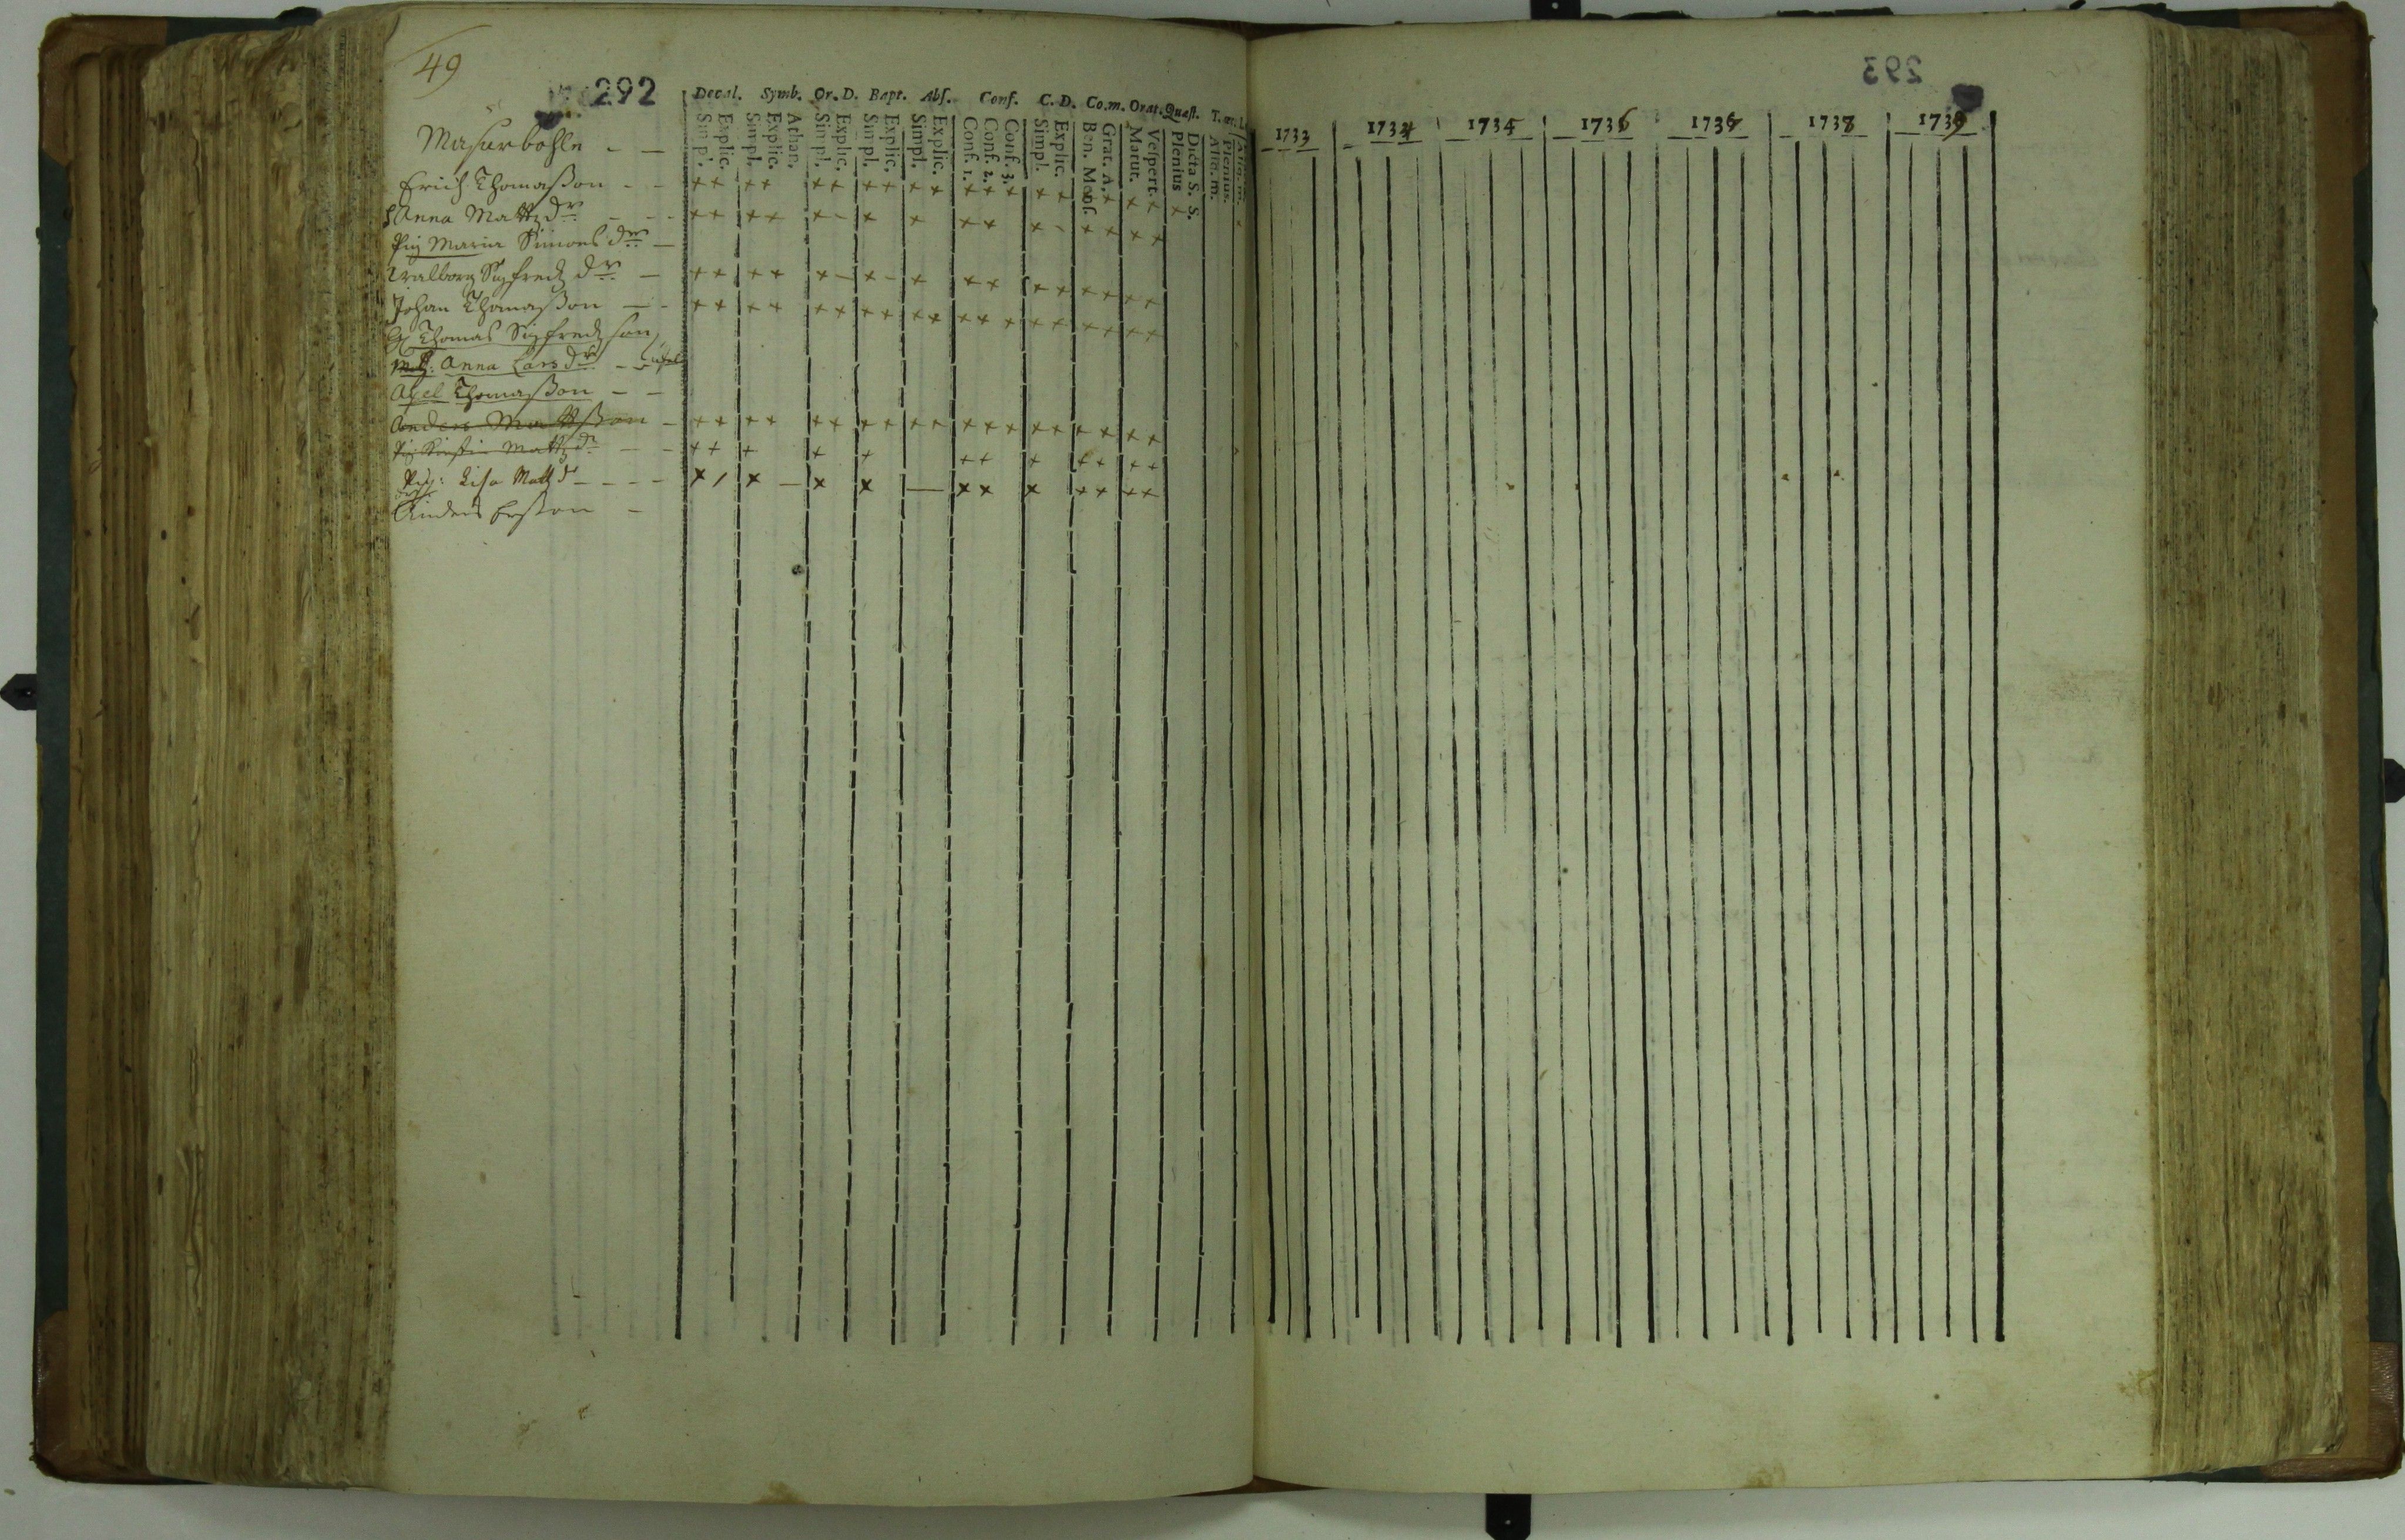 49
292
Decal. Symb. Or. D. Bapt. Abs. Conf. C. D. Com. Orat. Quæst. T. œc.
Simpl. Explic. Simpl. Explic. Athan. Simpl. Explic. Simpl. Explic. Simpl. Explic. Conf. 1. Conf. 2. Conf. 3. Simpl. Explic. Ben. Mens. Grat. A. Matut. Vespert. Plenius Dicta S. S. Aliq. m. Plenius.
Masurbohle
Erich Thomasson - - ++ ++ ++ ++ ++ +++ ++ + ++ +
Anna Matts dr - - - ++ ++ +- + + ++ +- ++ ++
Pig Maria Simons dr -
Walborg Sigfredz dr - ++ ++ +- +- + ++ ++ ++ ++
Johan Thomasson - - ++ ++ ++ ++ ++ +++ ++ ++ ++
Thomas Sigfredz son
Anna Lars dr -
Axel Thomasson - -
Anders Mattsson - ++ ++ ++ ++ ++ +++ ++ ++ ++
Pig Kirstin Matts dr - - ++ + + + ++ + ++ ++
Pig: Lisa Matts dr - - - - +/ + - + + - ++ + ++ ++
Anders Ersson -
293
1733 1734 1735 1736 1737 1738 1739